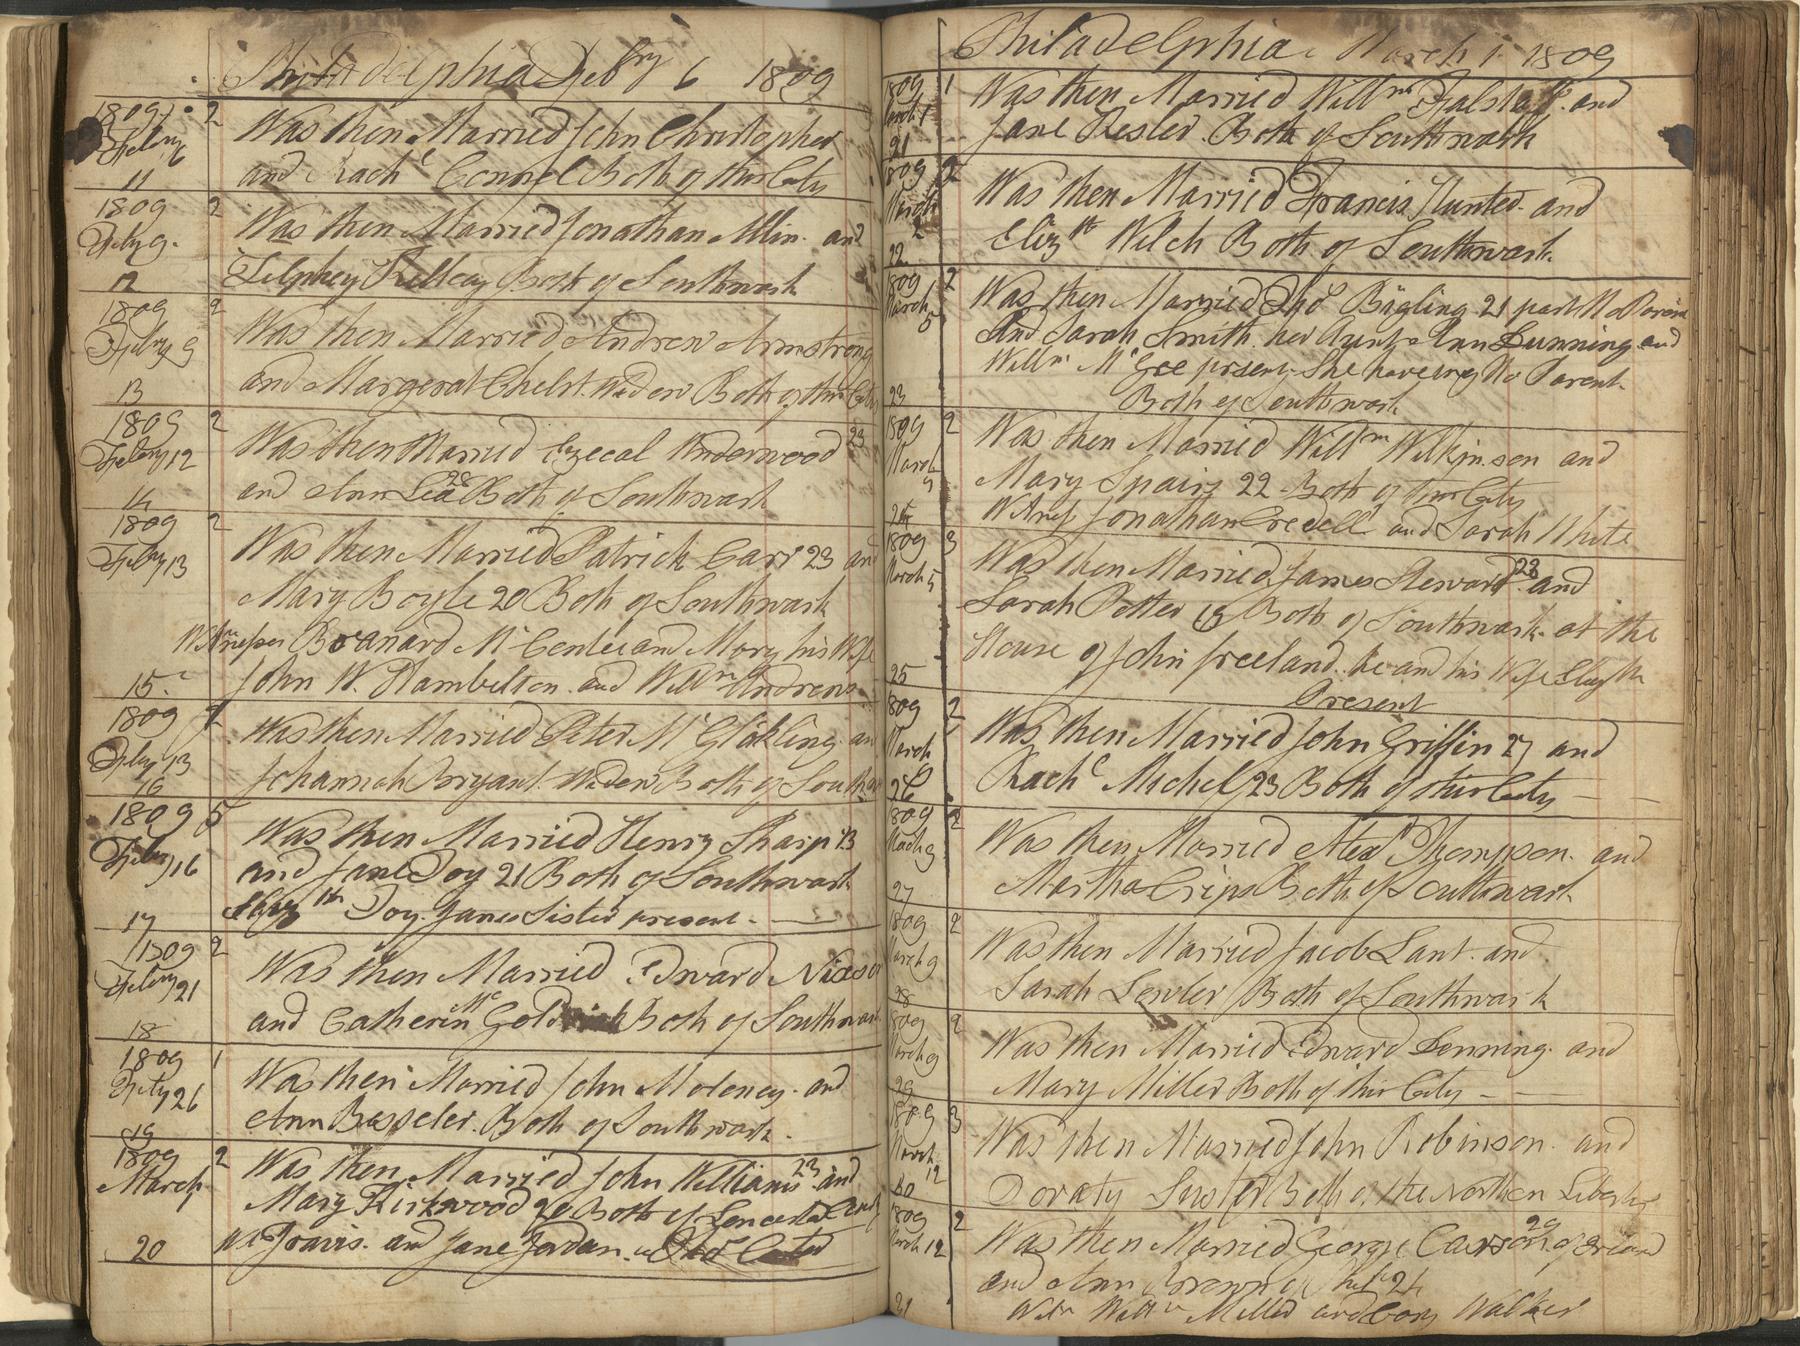 Philadelphia Feb^ry 6 1809
1809 2
Febry 6 Was then Married John Christopher
11 and Rach^l Connel Both of this City
1809 2
Feby 9 Was then Married Jonathan Allin and
12 Both of Southwark
1809 2
Febry 9 Was then Married Andrew Armstrong
13 and Margerat Widow Both of this City
1809 2
Febry 12 Was then Married Ezecal Underwood 23
14 and Ann Lea 28 Both of Southwark
1809 2
Febry 13 Was then Married Patrick Carr 23 and
Mary Boyle 20 Both of Southwark
Witnesses Baranard and Mary his Wife
15 John W. Hambelton and Will^m Andrews
1809 2
Feby 13 Was then Married Peter and
16 Johannah Bryant Widow Both of
1809 5
Febry 16 Was then Married Henry Sharp
and Jane Doy 21 Both of Southwark
17 Doy Janes Sister present
1809 2
Febry 21 Was then Married Edward Nixson
18 and Catherin Mc Both of Southwark
1809 1
Feby 26 Was then Married John Moleney and
19 Ann Both of Southwark
1809 2
March Was then Married John Williams 23 and
Mary Kirkwood 20 Both of
20 Travis and Jane Jordan
Philadelphia March 1 1809
1809 1
March 1 Was then Married Will^m Falstaff and
21 Jane Both of Southwark
1809 2
March 2 Was then Married Francis Hunted and
22 Eliz^th Welch Both of Southwark
1809 2
March 5 Was then Married Bigling 21
And Sarah Smith her Aunt Ann Dunning and
Will^m M^cGee present She haveing No Parent
23 Both of Southwark
1809 2
March Was then Married Will^m Wilkinson and
Mary 22 Both of this City
24 Jonathan and Sarah White
1809 3
March 5 Was then Married James Steward 23 and
Sarah Potter Both of Southwark at the
25 House of John freeland he and his Wife
Present
1809 2
March Was then Married John Griffin 27 and
26 Rach^l Michel 23 Both of this City
1809 2
March 9 Was then Married Alex^d Thompson and
27 Martha Crips Both of Southwark
1809 2
March 9 Was then Married Jacob Lant and
28 Sarah Lowler Both of Southwark
1809 2
March 9 Was then Married Edward Denning and
29 Mary Miller Both of this City
1809 3
March 12 Was then Married John Robinson and
30 Doraty Both of the Northen
1809 2
March 12 Was then Married George Carson 29 of
and Ann 21
31 Will^m Miller and Walker